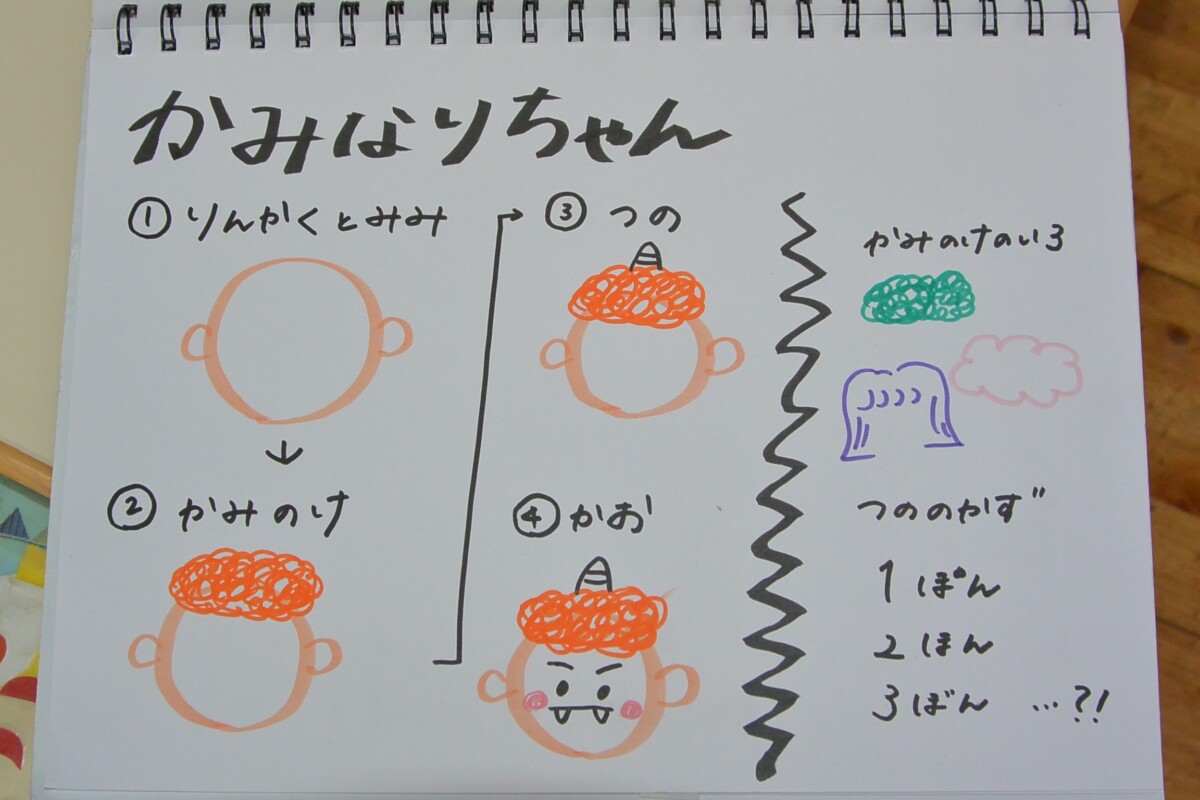 かみなりちゃん
① りんかくとみみ
② かみのけ
③ つの
④ かお
かみのけのいろ
つののかず"
1 ぽん
2 ほん
3 ぼん …?!